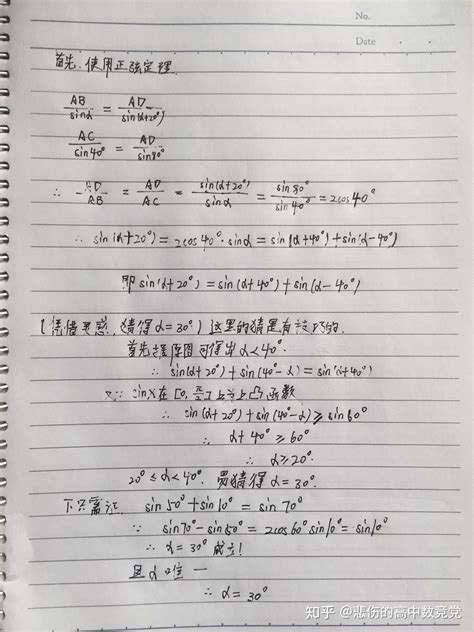 No.
Date
首先,使用正弦定理.
AB/sinα = AD/sin(α+20°)
AC/sin40° = AD/sin80°
∴ AD/AB = AD/AC = sin(α+20°)/sinα = sin80°/sin40° = 2cos40°
∴ sin(α+20°) = 2cos40°·sinα = sin(α+40°) + sin(α-40°)
即 sin(α+20°) = sin(α+40°) + sin(α-40°)
(凭借灵感,猜得α=30°) 这里的猜是有技巧的.
首先据原图可得出 α<40°.
∴ sin(α+20°) + sin(40°-α) = sin(α+40°)
又∵ sinx在[0, π/2]上为上凸函数
∴ sin(α+20°) + sin(40°-α) ≥ sin60°
∴ α+40° ≥ 60°
∴ α ≥ 20°.
20° ≤ α < 40°. 易猜得 α = 30°.
下只需证. sin50° + sin10° = sin70°
∵ sin70° - sin50° = 2cos60° sin10° = sin10°
∴ α = 30° 成立!
且α唯一
∴ α = 30°
知乎 @悲伤的高中数竞党